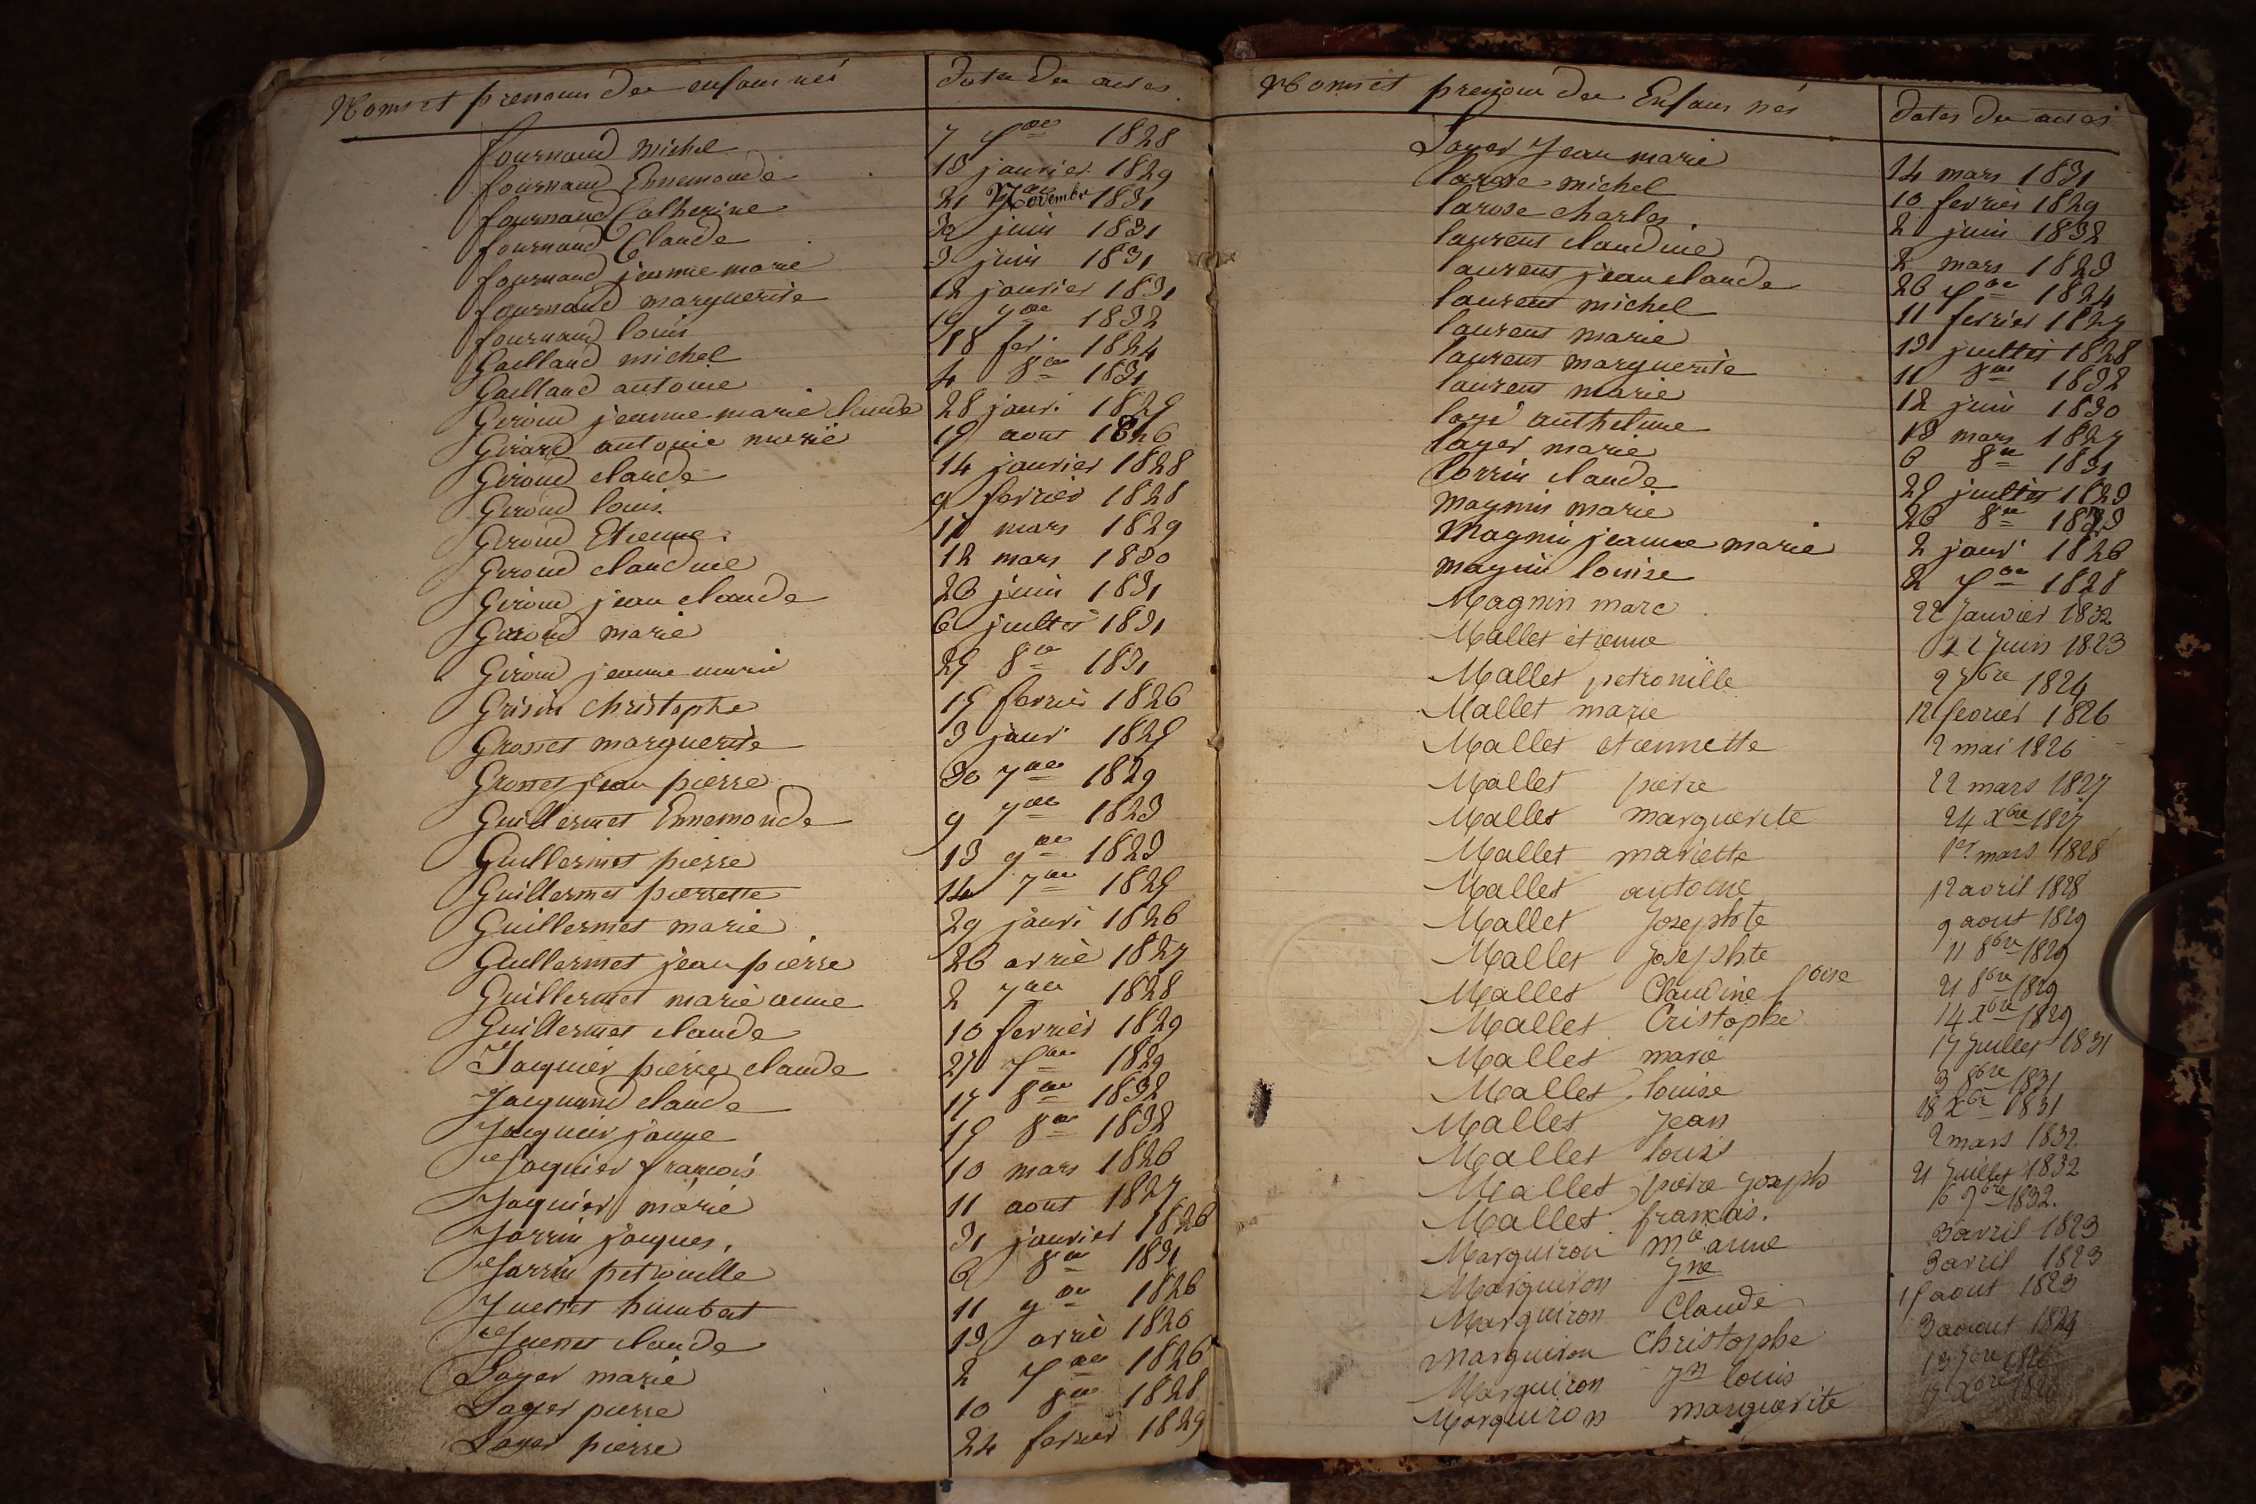 Noms et prenoms des enfans nés
Date des actes.
fournand michel 7 7bre 1828
fournand Ennemonde 13 janvier 1829
fournand Catherine 21 Novembre 1831
fournand Claude 30 juin 1831
fournand jeanne marie 3 juin 1831
fournand marguerite 12 janvier 1831
fournand louis 7bre 1832
Gailland michel 18 fev. 1824
Gailland antoine 4 8bre 1831
Giroud jeanne marie claude 28 janv. 1825
Girard antoine marie 19 aout 1826
Giroud claude 14 janvier 1828
Giroud louis 9 fevrier 1828
Giroud Etienne mars 1829
Giroud claudine 12 mars 1830
Giroud jean claude 26 juin 1831
Giroud marie 6 juillet 1831
Giroud jeanne marie 25 8bre 1831
Grisin christophe 15 fevrier 1826
Grosset marguerite 3 janv. 1825
Grosset jean pierre 30 7bre 1829
Guillermet Ennemonde 9 7bre 1823
Guillermet pierre 13 9bre 1823
Guillermet pierrette 14 7bre 1825
Guillermet marie 29 janv. 1826
Guillermet jean pierre 26 avril 1827
Guillermet marie anne 2 7bre 1828
Guillermet claude 10 fevrier 1829
Jacquier pierre claude 27 7bre 1829
Jacquand claude 17 8bre 1832
Jacquier 15 8bre 1832
Jacquier francois 10 mars 1826
Jaquier marie 11 aout 1827
Jarrin jacques. 31 janvier 1826
Jarrin petronille 6 8bre 1831
Juenet humbert 11 9bre 1826
Juenet claude 13 avril 1826
Layer marie 2 7bre 1826
Layer pierre 10 8bre 1828
Layer pierre 24 fevrier 1829
Noms et prenom des Enfans nés
Dates des actes
Layer Jean marie 14 mars 1831
larose michel 10 fevrier 1829
larose charles 2 juin 1832
laurent claudine 2 mars 1823
laurent jean claude 26 7bre 1824
laurent michel 11 fevrier 1827
laurent marie 13 juillet 1828
laurent marguerite 11 8bre 1832
laurent marie 12 juin 1830
anthelme 13 mars 1827
layer marie 6 8bre 1831
lorrin claude 25 juillet 1823
magnin marie 26 8bre
Magnin jeanne marie 2 janv. 1826
magnin louise 2 7bre 1828
Magnin marc 22 Janvier 1832
Mallet étienne 12 Juin 1823
Mallet petronille 2 7bre 1824
Mallet marie 12 fevrier 1826
Mallet etiennette 2 mai 1826
Mallet pierre 22 mars 1827
Mallet marguerite 24 Xbre 1827
Mallet mariette 1er mars 1828
Mallet antoine 12 avril 1828
Mallet Josephte 9 aout 1829
Mallet Josephte 11 8bre 1829
Mallet Claudine foise 21 8bre 1829
Mallet Cristophe 14 Xbre 1829
Mallet marie 17 Juillet 1831
Mallet louise 3 8bre 1831
Mallet Jean 18 Xbre 1831
Mallet louis 2 mars 1832
Mallet pierre Joseph 21 Juillet 1832
Mallet francois. 16 9bre 1832.
Marguiron mie anne 3 avril 1823
Marguiron Jne 3 avril 1823
Marguiron Claude 15 aout 1823
Marguiron Christophe 3 aout 1824
Marguiron Jn louis 13 7bre 1826
Marguiron marguerite